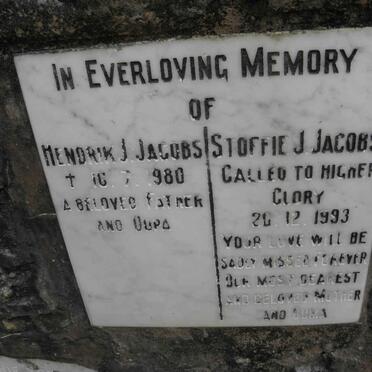 IN EVERLOVING MEMORY
OF
HENDRIK J. JACOBS
† 16.7.1980
A BELOVED FATHER
AND OUPA
STOFFIE J. JACOBS
CALLED TO HIGHER
GLORY
20.12.1993
YOUR LOVE WILL BE
SADLY MISSED FOREVER
OUR MOST DEAREST
AND BELOVED MOTHER
AND OUMA